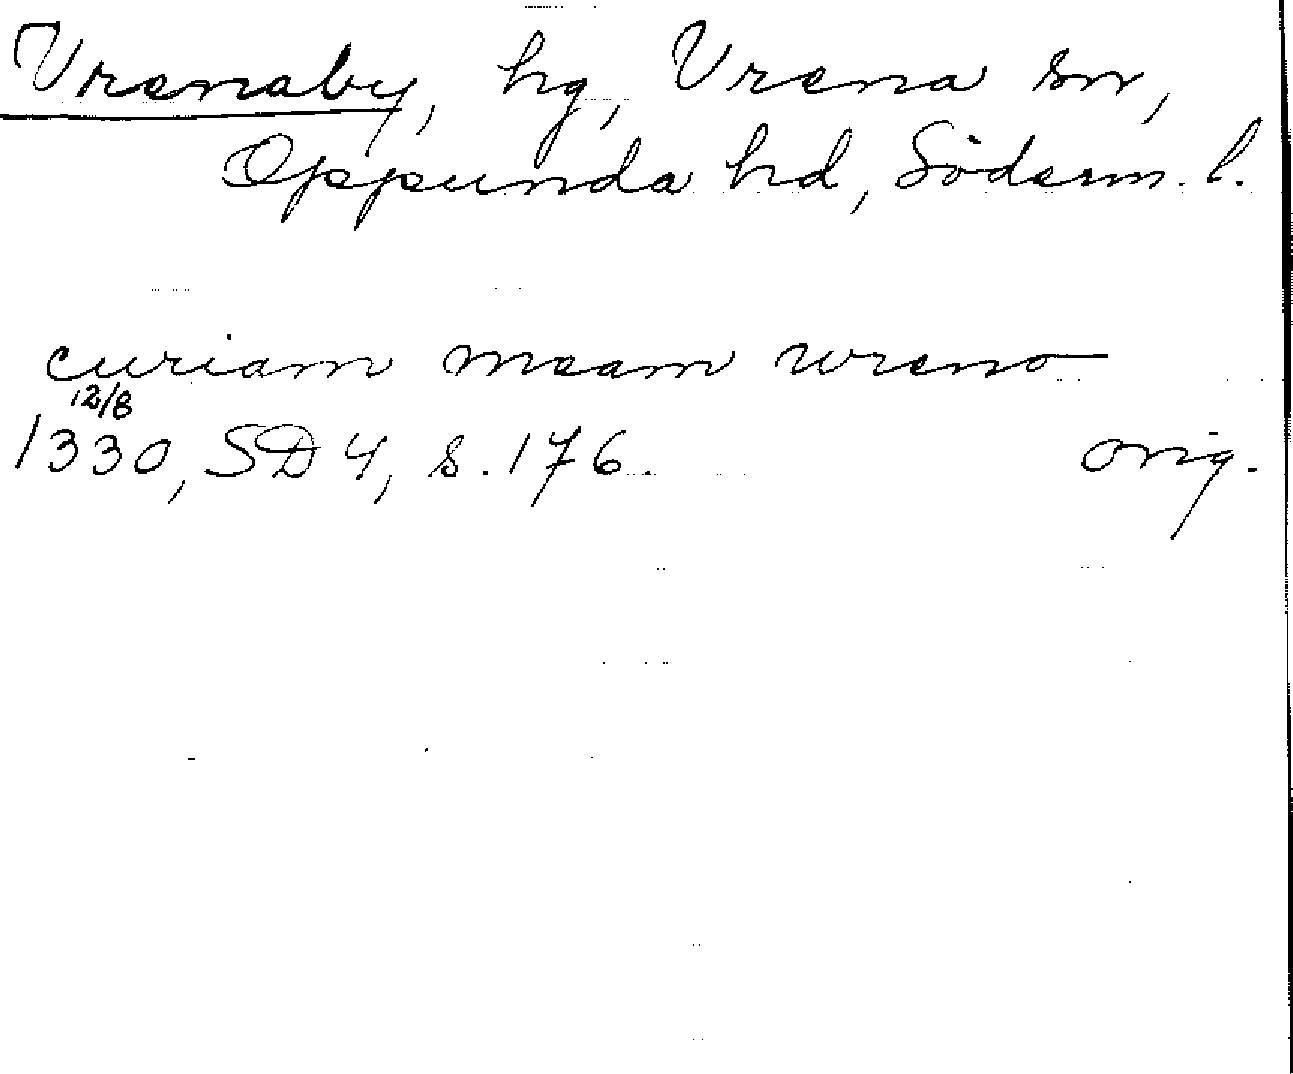 Vrenaby, hg, Vrena sn,
Oppunda hd, Söderm. l.
curiam meam wreno
12/8
1330, SD 4, s. 176. orig.